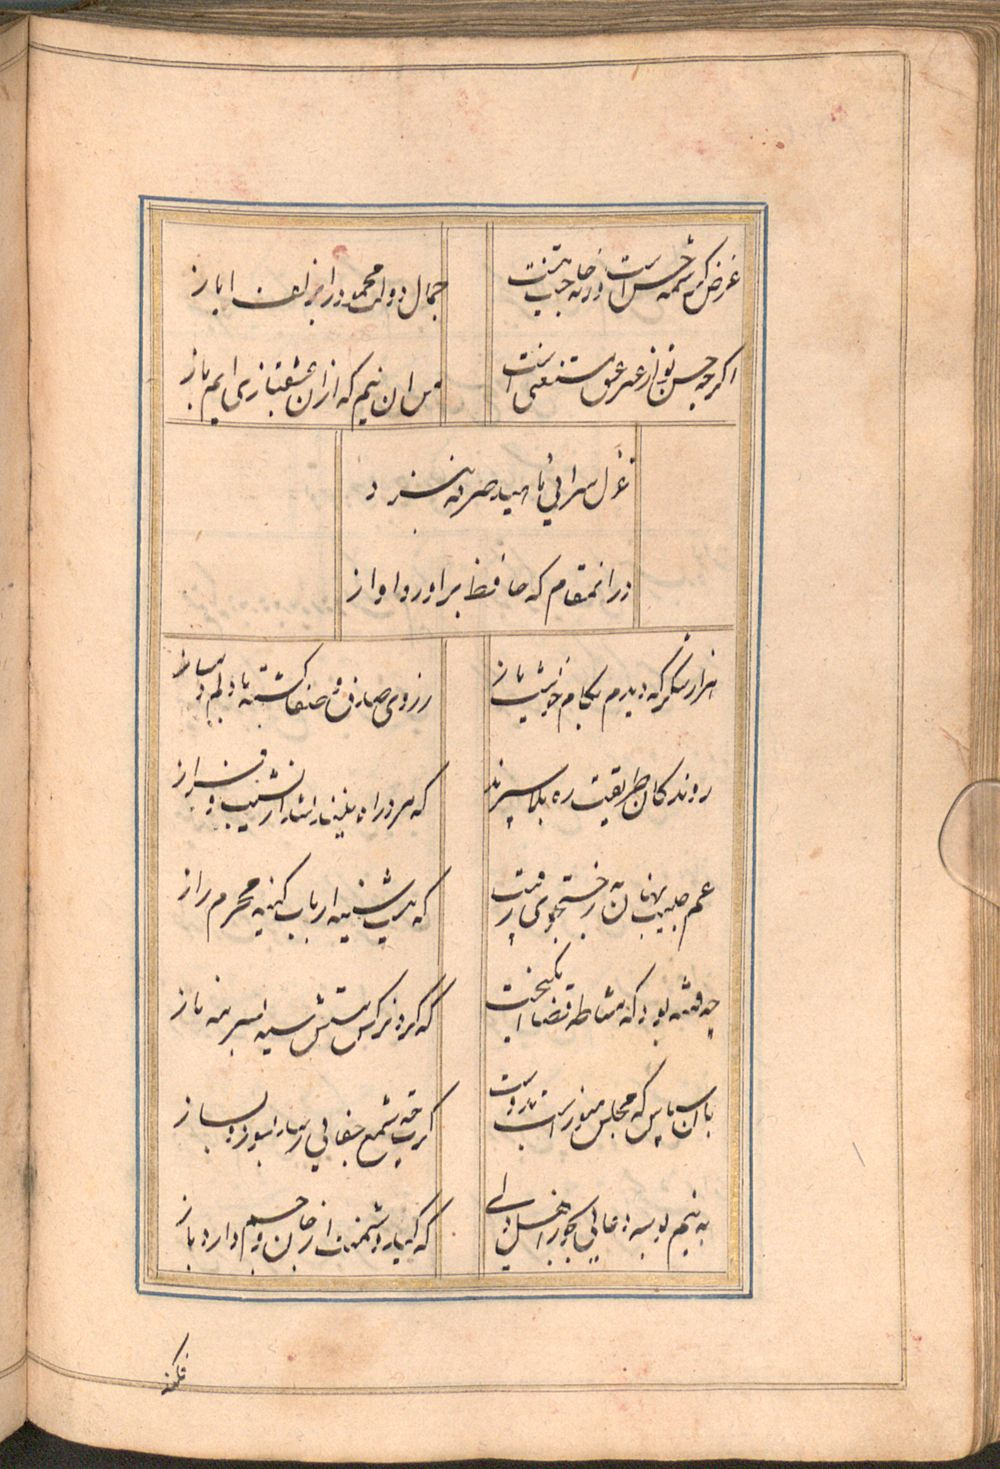 غرض کرشمه حسن است ورنه حاجت نیست
جمال دولت محمود را بزلف ایاز
اکرچه حسن تو از عشق غیر مستغنی است
من ان نیم که ازان عشقبازی ایم باز
غزل سرایی ناهید صرفه نبرد
درانمقام که حافظ براورد اواز
هزار شکر که دیدم بکام خویشت باز
ز روی صدق و صفا کشته با دلم دمساز
روندکان طریقت ره بلا سپرند
که مرد راه نیندیشد از نشیب و فراز
غم حبیب نهان به ز جستجوی رقیب
که نیست سینه ارباب کینه محرم راز
چه فتنه بود که مشاطه قضا انکیخت
که کرد نرکس مستش سیه بسرمه ناز
بدان سپاس که مجلس منور است بدوست
کرت چو شمع جفایی رسد بسوز و بساز
به نیم بوسه دعایی بخر ز اهل دلی
که کید دشمنت از جان و جسم دارد باز
فکند